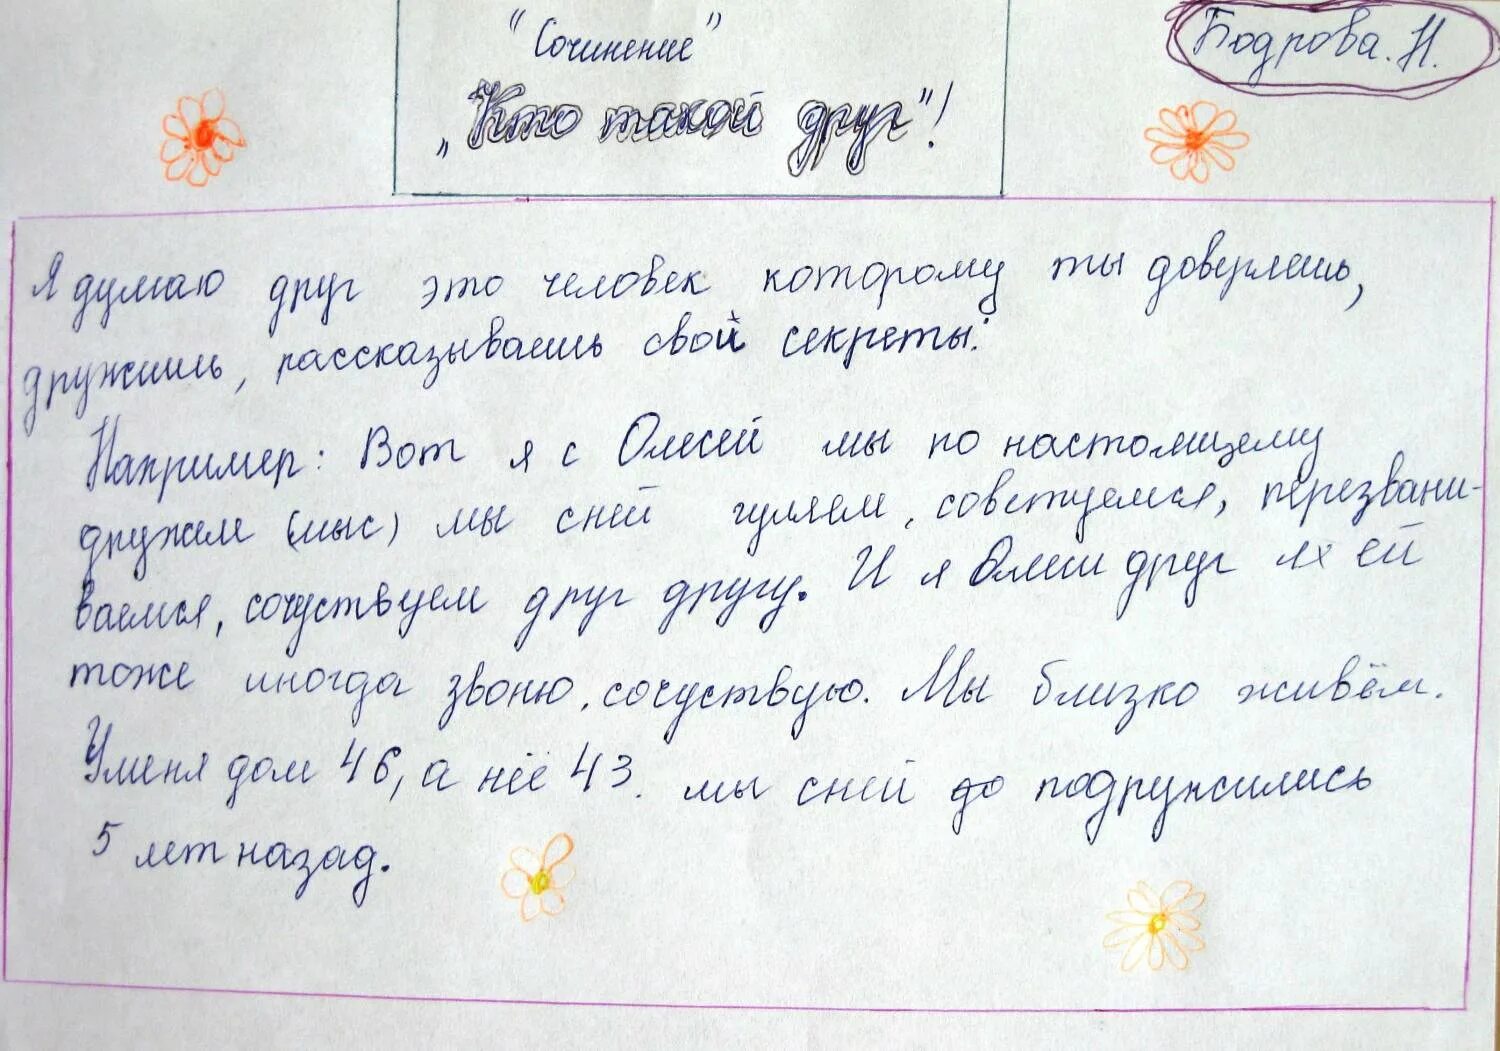 "Сочинение"
Бодрова. Н.
„Кто такой друг"!
Я думаю друг это человек которому ты доверяешь,
дружишь, рассказываешь свой секреты.
Например: Вот я с Олесей мы по настоящему
дружим (мыс) мы сней гуляем, советуемся, перезвани-
ваемся, сочуствуем друг другу. И я Олеси друг я ей
тоже иногда звоню, сочуствую. Мы близко живём.
Уменя дом 46, а неё 43. мы сней до подружились
5 лет назад.